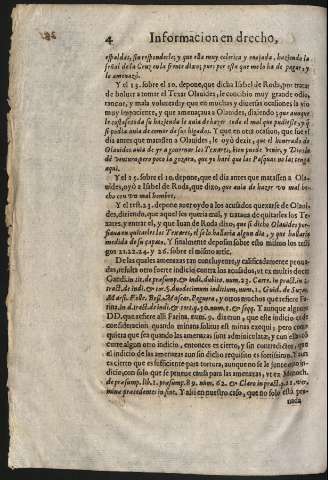 4 Informacion en drecho,
espaldas, sin responderle; y que esta muy colerica y enojada, haziendo la
señal de la Cruz en la frente dixo; pues por esta que me lo ha de pagar, y
le amenazò.
Y el 13. sobre el 10. depone, que dicha Isabel de Roda, por tratar
de boluer a tomar el Texar Olauides, le concibio muy grande odio,
rancor, y mala voluntad; y que en muchas y diuersas ocasiones la vio
muy impaciente, y que amenazaua a Olauides, diziendo; que aunque
le costasse toda su hazienda le auia de hazer todo el mal que pudiesse, y
si podia auia de comer de sus higados. Y que en otra ocasion, que fue el
dia antes que matassen a Olauides, le oyò dezir, que el
Olauides auia de yr a gouernar los Texares, bien puede venir, y
dè ventura poco la gozara, que yo harè que las Pasquas no las tenga
aqui.
Y el 25. sobre el 10. depone, que el dia antes que matassen a Ola-
uides, oyò a Isabel de Roda, que dixo, que auia de hazer vn mal he-
cho con vn mal hombre.
Y el test. 23. depone auer oydo a los acusados quexarse de Olaui-
des, diziendo, que aquel los queria mal, y trataua de quitarles los Te-
xares, y entrar el, y que Iuan de Roda dixo, que si dicho Olauides por-
fiaua en quitarles los Texares, el se lo hallaria algun dia, y que hallaria
medida de su çapato. Y finalmente deposan sobre esto mismo los testi-
gos 21.22.24. y 26. sobre el mismo artic.
De las quales amenazas tan concluyente, y calificadamente proua-
das, resulta otro fuerte indicio contra los acusados, vt ex multis docent
Gandi. in tit. de præsump. & indic. dubita. num. 23. Carre. in pract. in 2.
tract. de indi. & tor. §. duodecimum inditium, num. 1. Guid. de Suza.
Marsi. Folle. Boss. Mascar. Peguera, y otros muchos que refiere Fa-
rina. in d. tract. de indic. & tort. q. 50. num. 1. & seqq. Y aunque algunos
DD. que refiere alli Farina. num. 9. dixeron, que este indicio es de
consideracion quando minans solitus est minas exequi; pero como
quiera que sea quando las amenazas son adminiculadas, y con ellas
curre algun otro indicio, entonces es cierto, y sin contradicion, que
el indicio de las amenazas aun sin dicho requisito es fortissimo. Y aun
es cierto que es suficiente para tortura, aunque no se le junte otro in-
dicio, con solo que se prueue causa para las amenazas, vt ex Menoch.
de præsump. lib. 1. præsump. 89. num. 62. & Claro in pract. q. 21. ver.
minæ præcedentes in fine. Y assi en nuestro caso, que no solo està pro-
uada